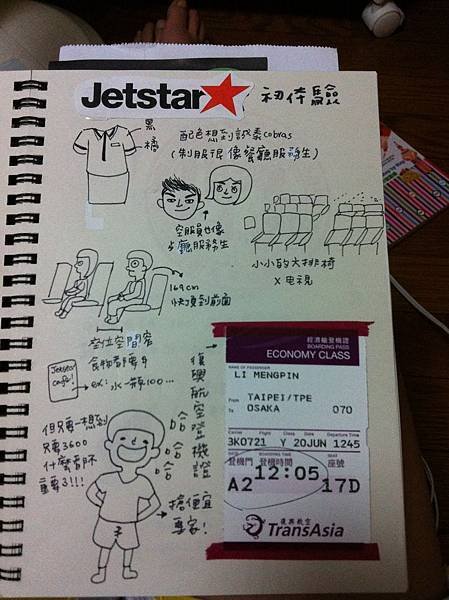 Jetstar 初体驗
黑
橘
配色想到設泰cobras
(制服很像餐廳服務生)
空服員也像
餐廳服務生
小小的大排椅
X 电視
169cm
快頂到前面
空位空間窄
食物都要$
ex: 水一瓶100...
Jetstar
cafe!
但只要一想到
只要3600
什麼都不
重要了!!!
哈哈
哈哈
哈哈
搶便宜
專家!
復興航空登機證
經濟艙登機證
BOARDING PASS
ECONOMY CLASS
NAME OF PASSENGER
LI MENGPIN
From TAIPEI/TPE
To OSAKA 070
Carrier Flight Class Date Departure Time
3K0721 Y 20JUN 1245
GATE BOARDING TIME SEAT
登機門 登機時間 座號
A2 12:05 17D
復興航空
TransAsia